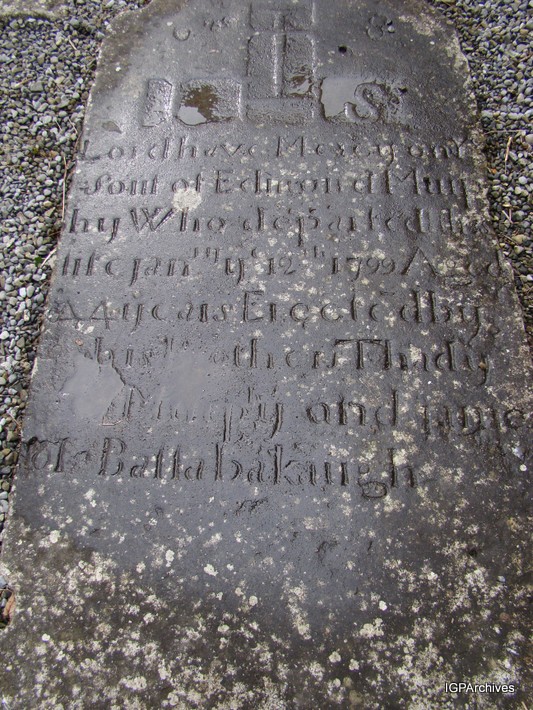 IHS
Lord have Mercy on ye
soul of Edmond Mur
hy Who departed his
life janry ye 12th 1799 Aged
44 years Erected by
his Brothers Thady
Murphy and jame
of Ballabakingh
IGPArchives